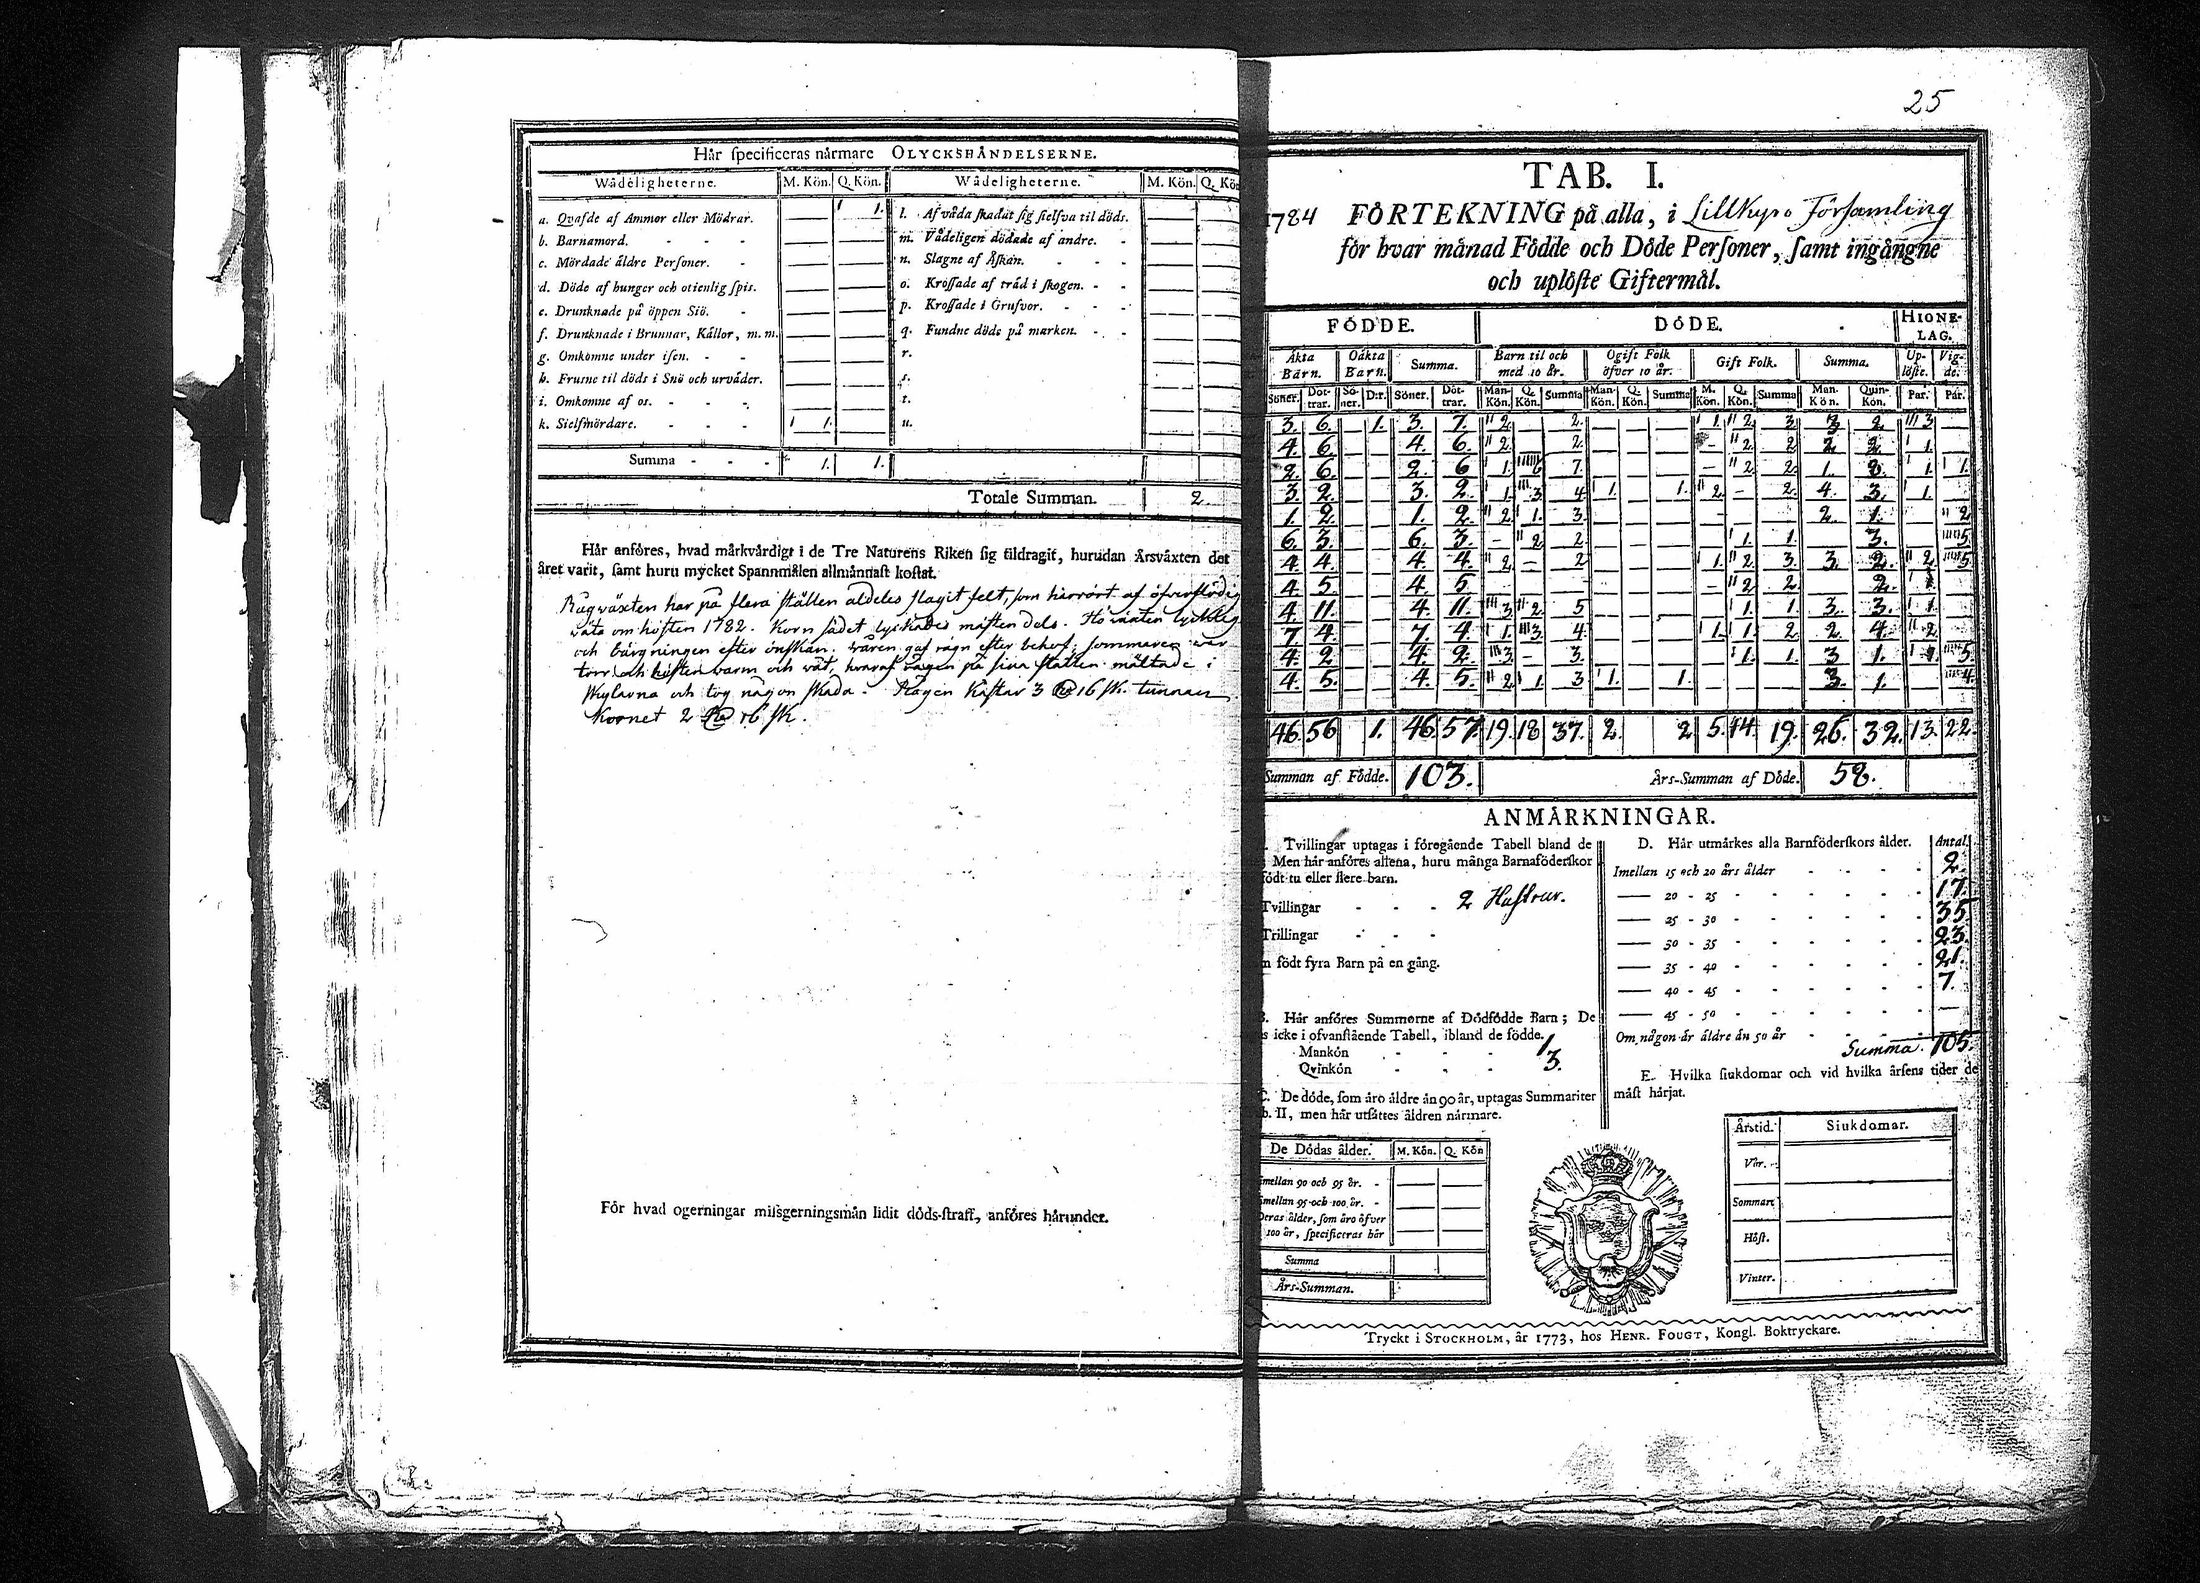 Hår ſpecificeras nårmare OLYCKSHÅNDELSERNE.
Wådeligheterne. M. Kön. Q. Kön. Wådeligheterne. M. Kön. Q. Kön
a. Qvafde af Ammor eller Mödrar. 1. l. Af våda ſkadat ſig ſielfva til döds.
b. Barnamord. m. Vådeligen dödade af andre.
c. Mördade äldre Perſoner. n. Slagne af Åſkan.
d. Döde af hunger och otienlig ſpis. o. Kroſſade af träd i ſkogen.
e. Drunknade på öppen Siö. p. Kroſſade i Grufvor.
f. Drunknade i Brunnar, Källor, m. m. q. Fundne döds på marken.
g. Omkomne under iſen. r.
h. Fruſne til döds i Snö och urväder. ſ.
i. Omkomne af os. t.
k. Sielfmördare. 1. u.
Summa 1. 1.
Totale Summan. 2.
Hår anföres, hvad mårkvårdigt i de Tre Naturens Riken ſig tildragit, hurudan Årsväxten det
året varit, ſamt huru mycket Spannmålen allmånnaſt koſtat.
Rågväxten har på flera ſtällen aldeles ſlagit felt, ſom härrört af öfverflödig
väta om höſten 1782. Korn ſädet lyckades mäſten dels. Höväxten lycklig
och bärgningen efter önſkan. Våren gaf rägn efter behof, ſommaren war
torr och höſten varm och våt, hvaraf rågen på ſina ſtällen mältade i
ſkylarna och tog någon ſkada. Rågen koſtar 3 Rd 16 ſk. tunnan
Kornet 2 Rd 16 ſk.
För hvad ogerningar miſsgerningsmån lidit döds-ſtraff, anföres hårunder.
25
TAB. I.
1784 FÖRTEKNING på alla, i Lillkyro Förſamling
för hvar månad Födde och Döde Perſoner, ſamt ingångne
och uplöſte Giftermål.
FÖDDE. DÖDE. HIONE-
LAG.
Äkta Oäkta Summa. Barn til och Ogift Folk Gift Folk. Summa. Up- Vig-
Barn. Barn. med 10 år. öfver 10 år. löſte. de.
Söner. Döt- Sö- D:r. Söner. Döt- Man- Q. Summa Man- Q. Summa M. Q. Summa Man- Quin- Par. Par.
trar. ner. trar. Kön. Kön. Kön. Kön. Kön. Kön. Kön. Kön.
3. 6. 1. 3. 7. 2. 2. 1. 2. 3. 3. 2. 3
4. 6. 4. 6. 2. 2. 2. 2. 2. 2. 1.
2. 6. 2. 6 1. 6 7. 2. 2. 1. 8. 1. 1.
3. 2. 3. 2. 1. 3. 4. 1. 1. 2. 2. 4. 3. 1.
1. 2. 1. 2. 2. 1. 3. 2. 1. 2
6. 3. 6. 3. 2. 2. 1. 1. 3. 5.
4. 4. 4. 4. 2. 2 1. 2. 3. 3. 2. 2. 5.
4. 5. 4. 5. 2. 2. 2. 1.
4. 11. 4. 11. 3. 2. 5 1. 1. 3. 3. 1.
7. 4. 7. 4. 1. 3. 4. 1. 1. 2 2. 4. 2.
4. 2. 4. 2. 3. 3. 1. 1. 3. 1. 1. 5.
4. 5. 4. 5. 2. 1. 3 1. 1. 3. 1. 4.
46. 56 1. 46 57. 19. 18 37. 2. 2 5. 14. 19. 26. 32. 13. 22.
Summan af Födde. 103. Års-Summan af Döde. 58.
ANMÄRKNINGAR.
Tvillingar uptagas i föregående Tabell bland de
Men här anföres allena, huru många Barnaföderſkor
födt tu eller flere barn.
Tvillingar 2 Huſtrur.
Trillingar
födt fyra Barn på en gång.
B. Hår anföres Summorne af Dödfödde Barn; De
icke i ofvanſtående Tabell, ibland de födde.
Mankön 1
Qvinkön 3.
C. De döde, ſom äro äldre än 90 år, uptagas Summariter
II, men hår utſättes åldren närmare.
De Dödas ålder. M. Kön. Q. Kön
mellan 90 och 95 år.
mellan 95 och 100 år.
Deras ålder, ſom äro öfver
100 år, ſpecificeras här
Summa
Års-Summan.
D. Hår utmårkes alla Barnföderſkors ålder. Antal.
Imellan 15 och 20 års ålder 2.
20 - 25 17.
25 - 30 35.
30 - 35 23.
35 - 40 21.
40 - 45 7.
45 - 50
Om någon är äldre än 50 år
Summa. 105.
E. Hvilka ſiukdomar och vid hvilka årſens tider de
måſt hårjat.
Årstid. Siukdomar.
Vår.
Sommar.
Höſt.
Vinter.
Tryckt i STOCKHOLM, år 1773, hos HENR. FOUGT, Kongl. Boktryckare.